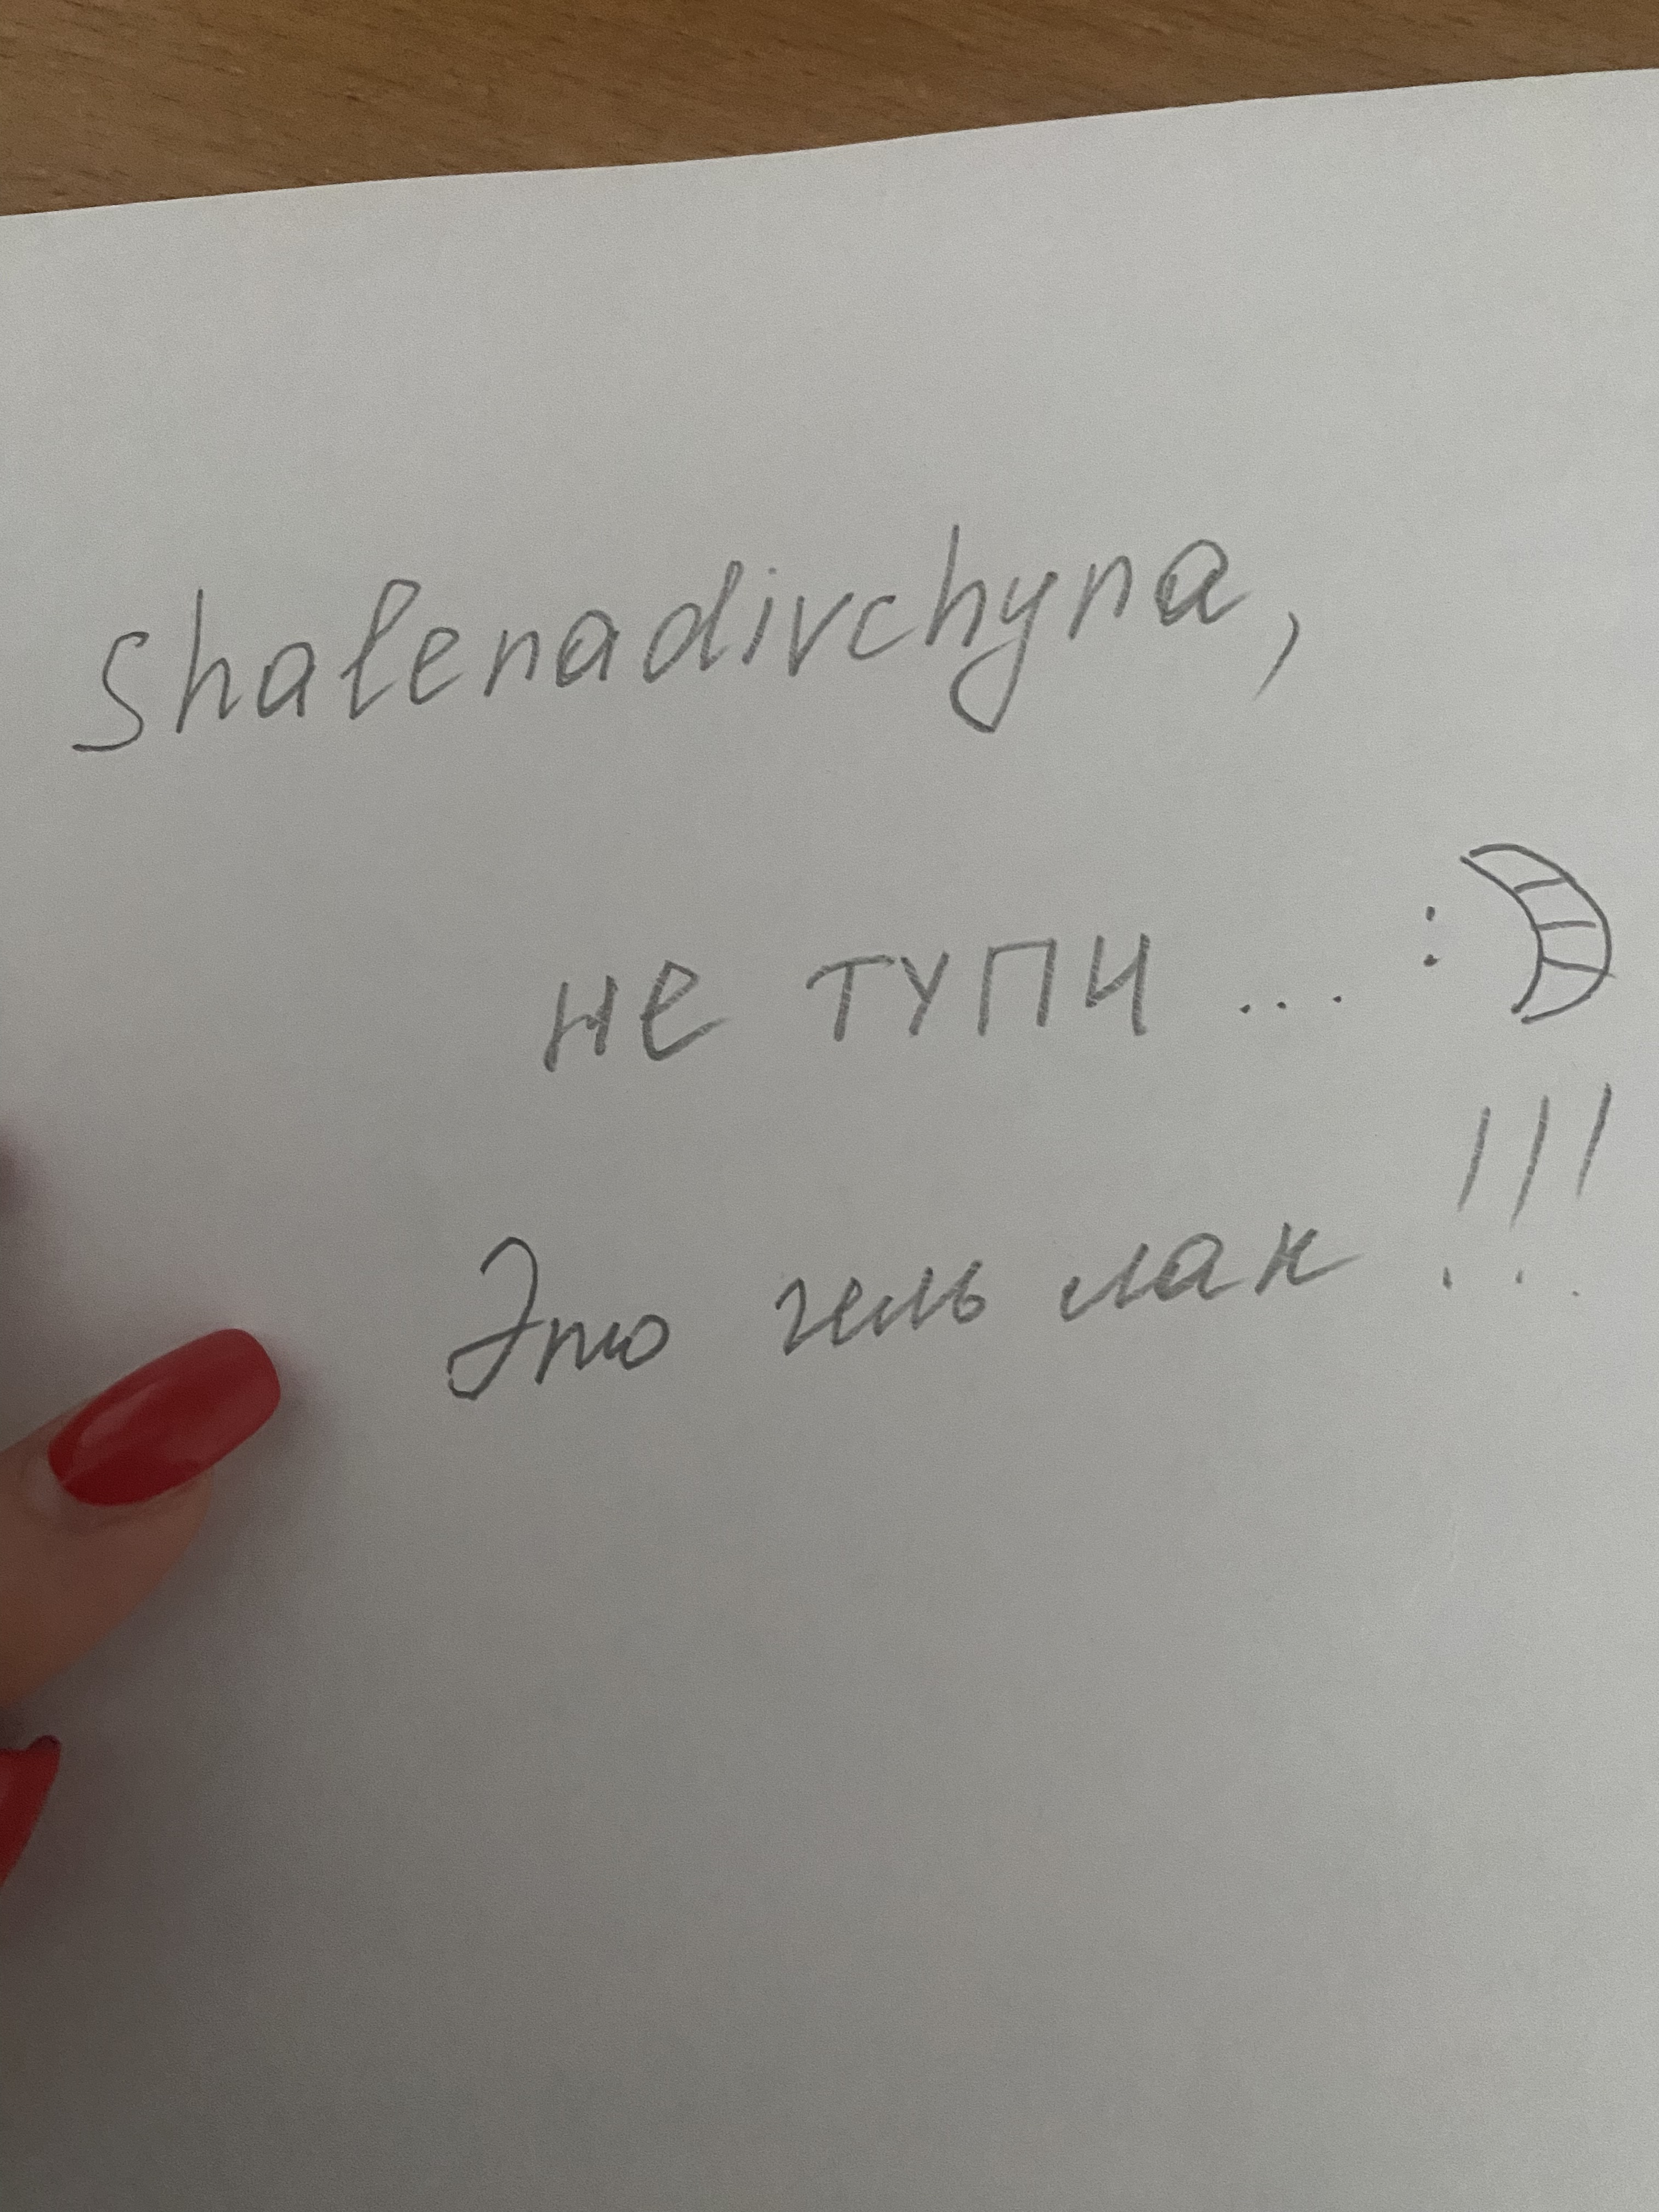 Shalenadivchyna,
не тупи ... :)
Это гель лак !!!